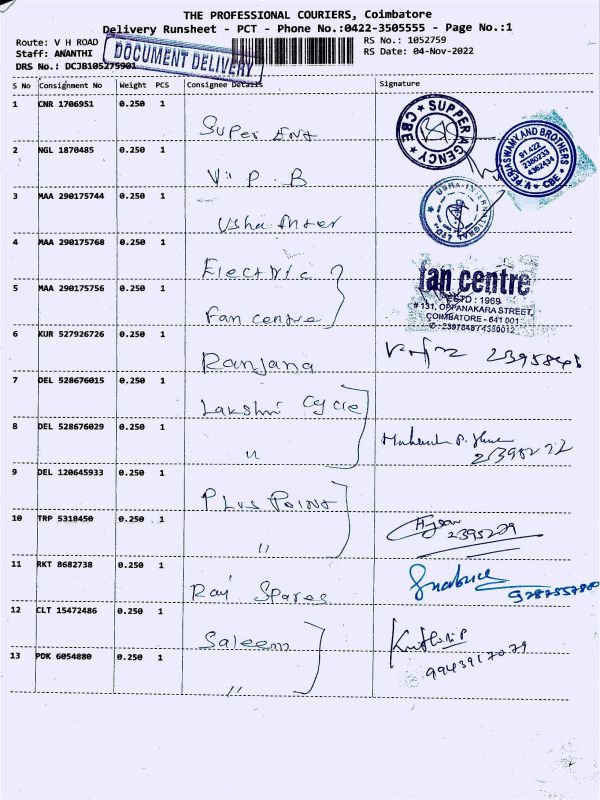 THE PROFESSIONAL COURIERS, Coimbatore
Delivery Runsheet - PCT - Phone No.:0422-3505555 - Page No.:1
Route: V H ROAD
RS No.: 1052759
Staff: ANANTHI
RS Date: 04-Nov-2022
DRS No.: DCJB105275901
DOCUMENT DELIVERY
S No Consignment No Weight PCS Consignee Details Signature
1 CNR 1706951 0.250 1
Super Ent
SUPPER AGENCY
CBE
2 NGL 1870485 0.250 1
V. P. B
V PERIASWAMY AND BROTHERS
CBE
3 MAA 290175744 0.250 1
Usha Inter
USHA INTERNATIONAL LTD
4 MAA 290175768 0.250 1
Electric
5 MAA 290175756 0.250 1
Fan centre
fan centre
ESTD : 1969
# 131, OPPANAKARA STREET,
COIMBATORE - 641 001
6 KUR 527926726 0.250 1
Ranjana
7 DEL 528676015 0.250 1
Lakshmi Cycle
8 DEL 528676029 0.250 1
"
9 DEL 120645933 0.250 1
Plus Point
10 TRP 5318450 0.250 1
"
2395279
11 RKT 8682738 0.250 1
Raj Spares
12 CLT 15472486 0.250 1
Saleem
13 PDK 6054880 0.250 1
"
9943917079